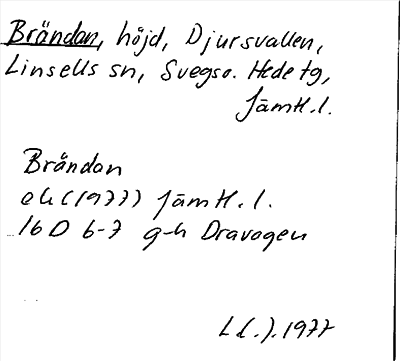 Brändan, höjd, Djursvallen,
Linsells sn, Svegs o. Hede tg,
Jämtl.l.
Brändan
ek (1977) Jämtl.l.
16D 6-7 g-h Dravagen
L.L.). 1977